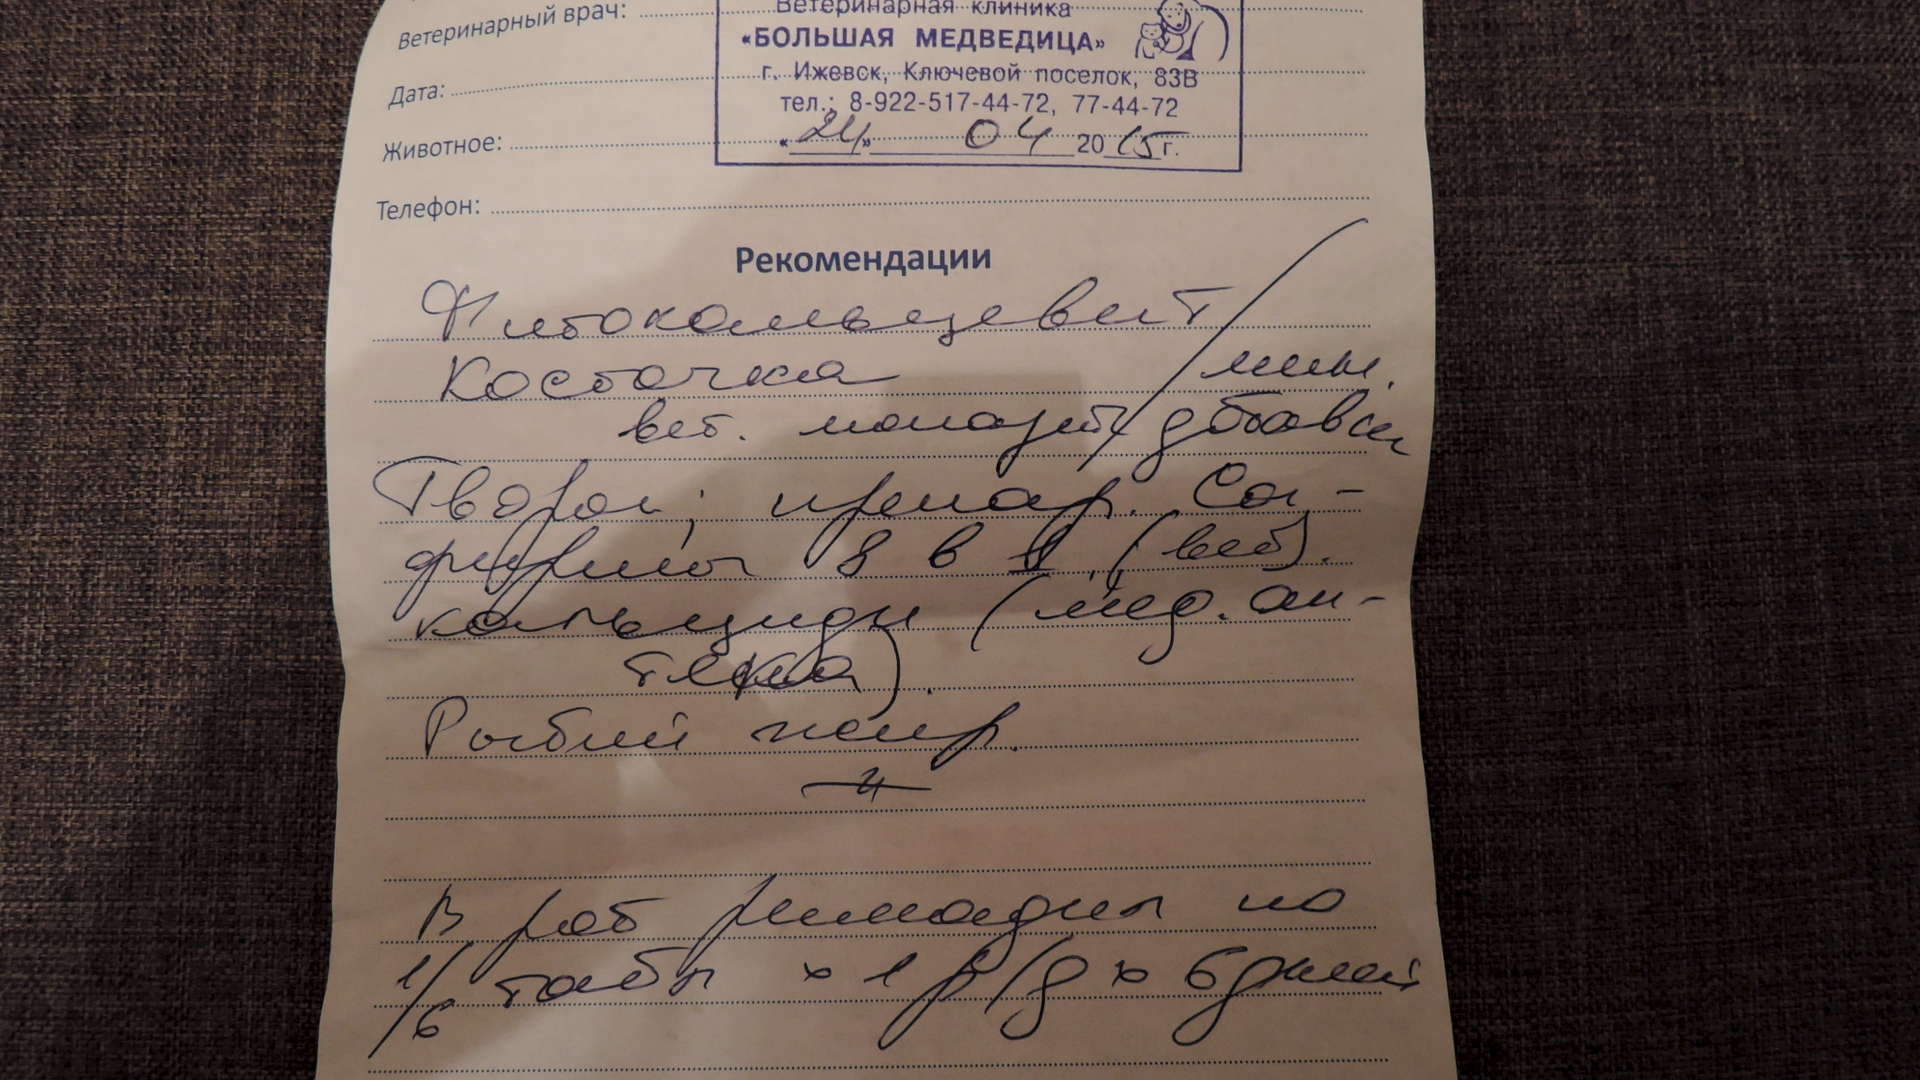 Ветеринарный врач:
Ветеринарная клиника
«БОЛЬШАЯ МЕДВЕДИЦА»
г. Ижевск, Ключевой поселок, 83В
тел.: 8-922-517-44-72, 77-44-72
«24» 04 2015г.
Дата:
Животное:
Телефон:
Рекомендации
Фитокальцевит
Косточка / мин.
вет. магазин / добавки
Творог; препар. Са,
фирмы 8 в 1 (вет).
кальцид (мед. ап-
тека).
Рыбий жир.
В рот римадил по
1/6 табл x 1 р/д x 6 дней